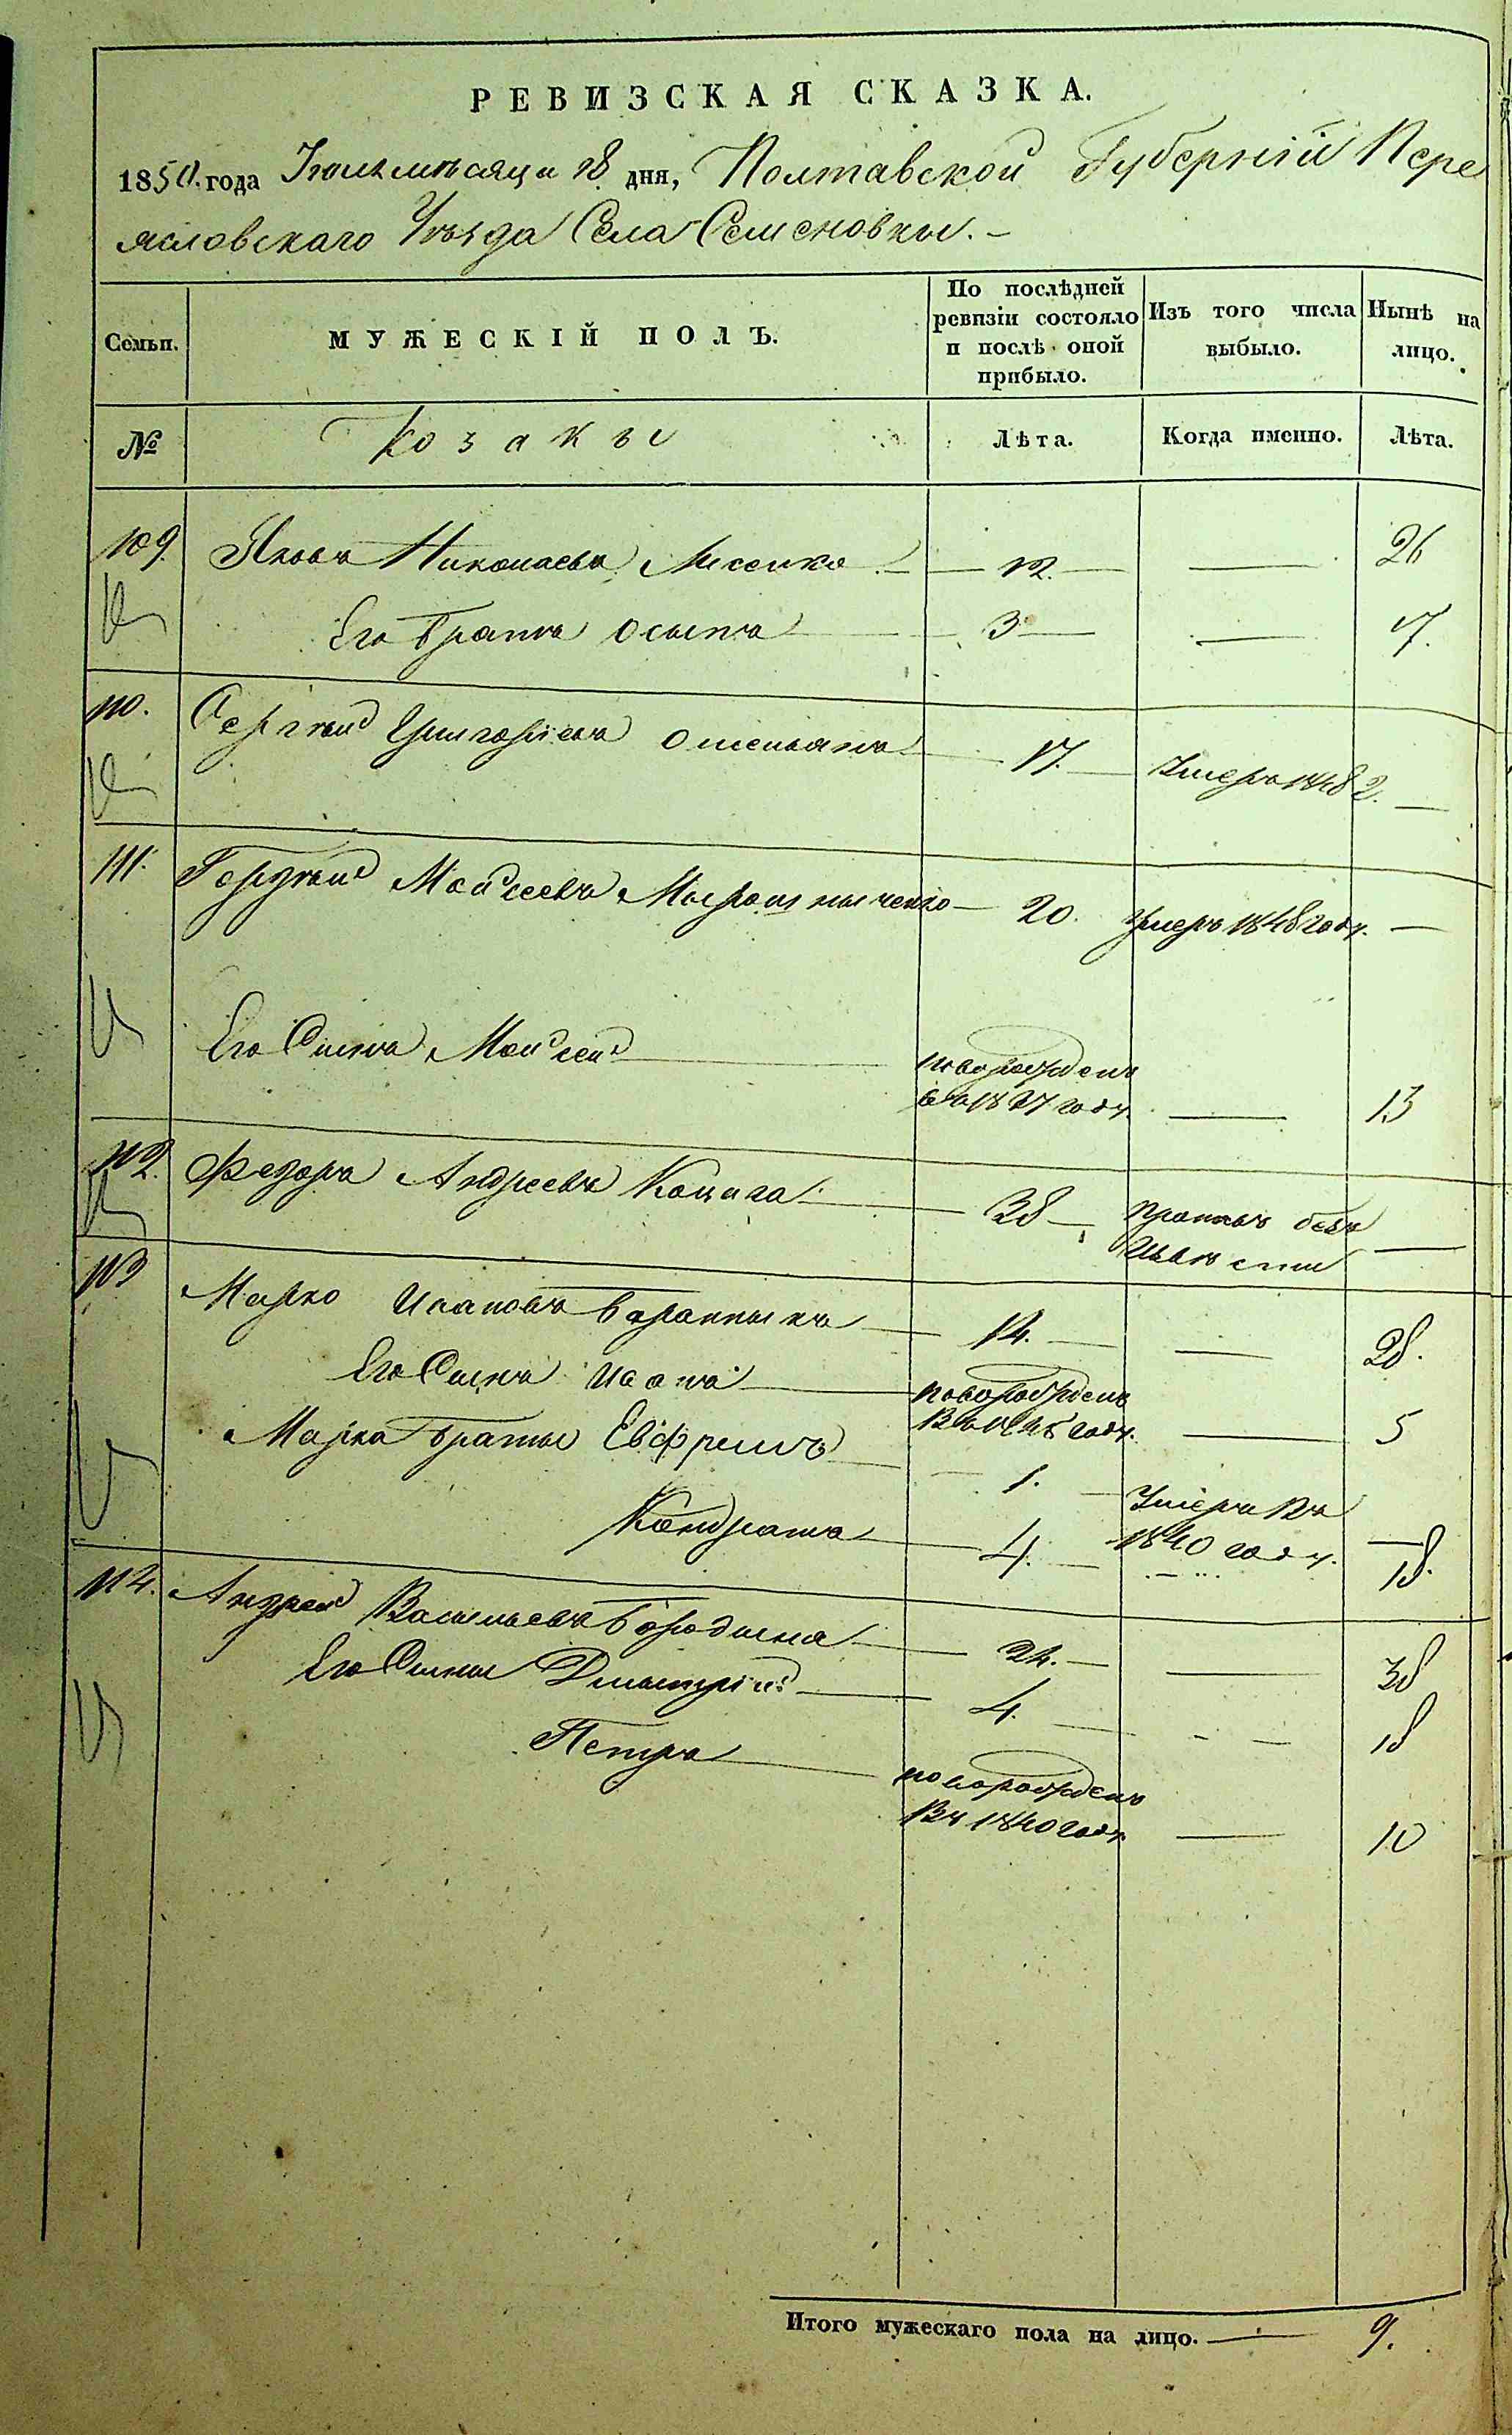 РЕВИЗСКАЯ СКАЗКА.
1850. года Іюля мѣсяца 18 дня, Полтавской Губерніи Пере
яславскаго Уѣзда Села Семеновки. –
Семьи. МУЖЕСКІЙ ПОЛЪ. По послѣдней ревизіи состояло и послѣ оной прибыло. Изъ того числа выбыло. Нынѣ на лицо.
№ Козакы Лѣта. Когда именно. Лѣта.
109. Яковъ Николаевъ 12. — 26
Его братъ Осыпъ 3 — 17.
110. Сергѣй Григоріевъ 17. Умеръ 1848
111. Гордѣй Моисеевъ Мырошныченко 20. Умеръ 1848 году. —
Его Сынъ Моисей новорожденъ
въ 1837 году. — 13
112. Федоръ Андреевъ 38
113 Марко Ивановъ Баранныкъ 14. — 28.
Его Сынъ Иванъ новорожденъ
въ 1845 году. — 5
Марка братья Евфремъ 1. Умеръ въ
1840 году. —
Кондратъ 4. 18.
114. Андрей Васыльевъ Бородына 24. — 38
Его Сыны Дмытрій 4. — 18
Петръ новорожденъ
въ 1840 году — 10
Итого мужескаго пола на лицо. — 9.